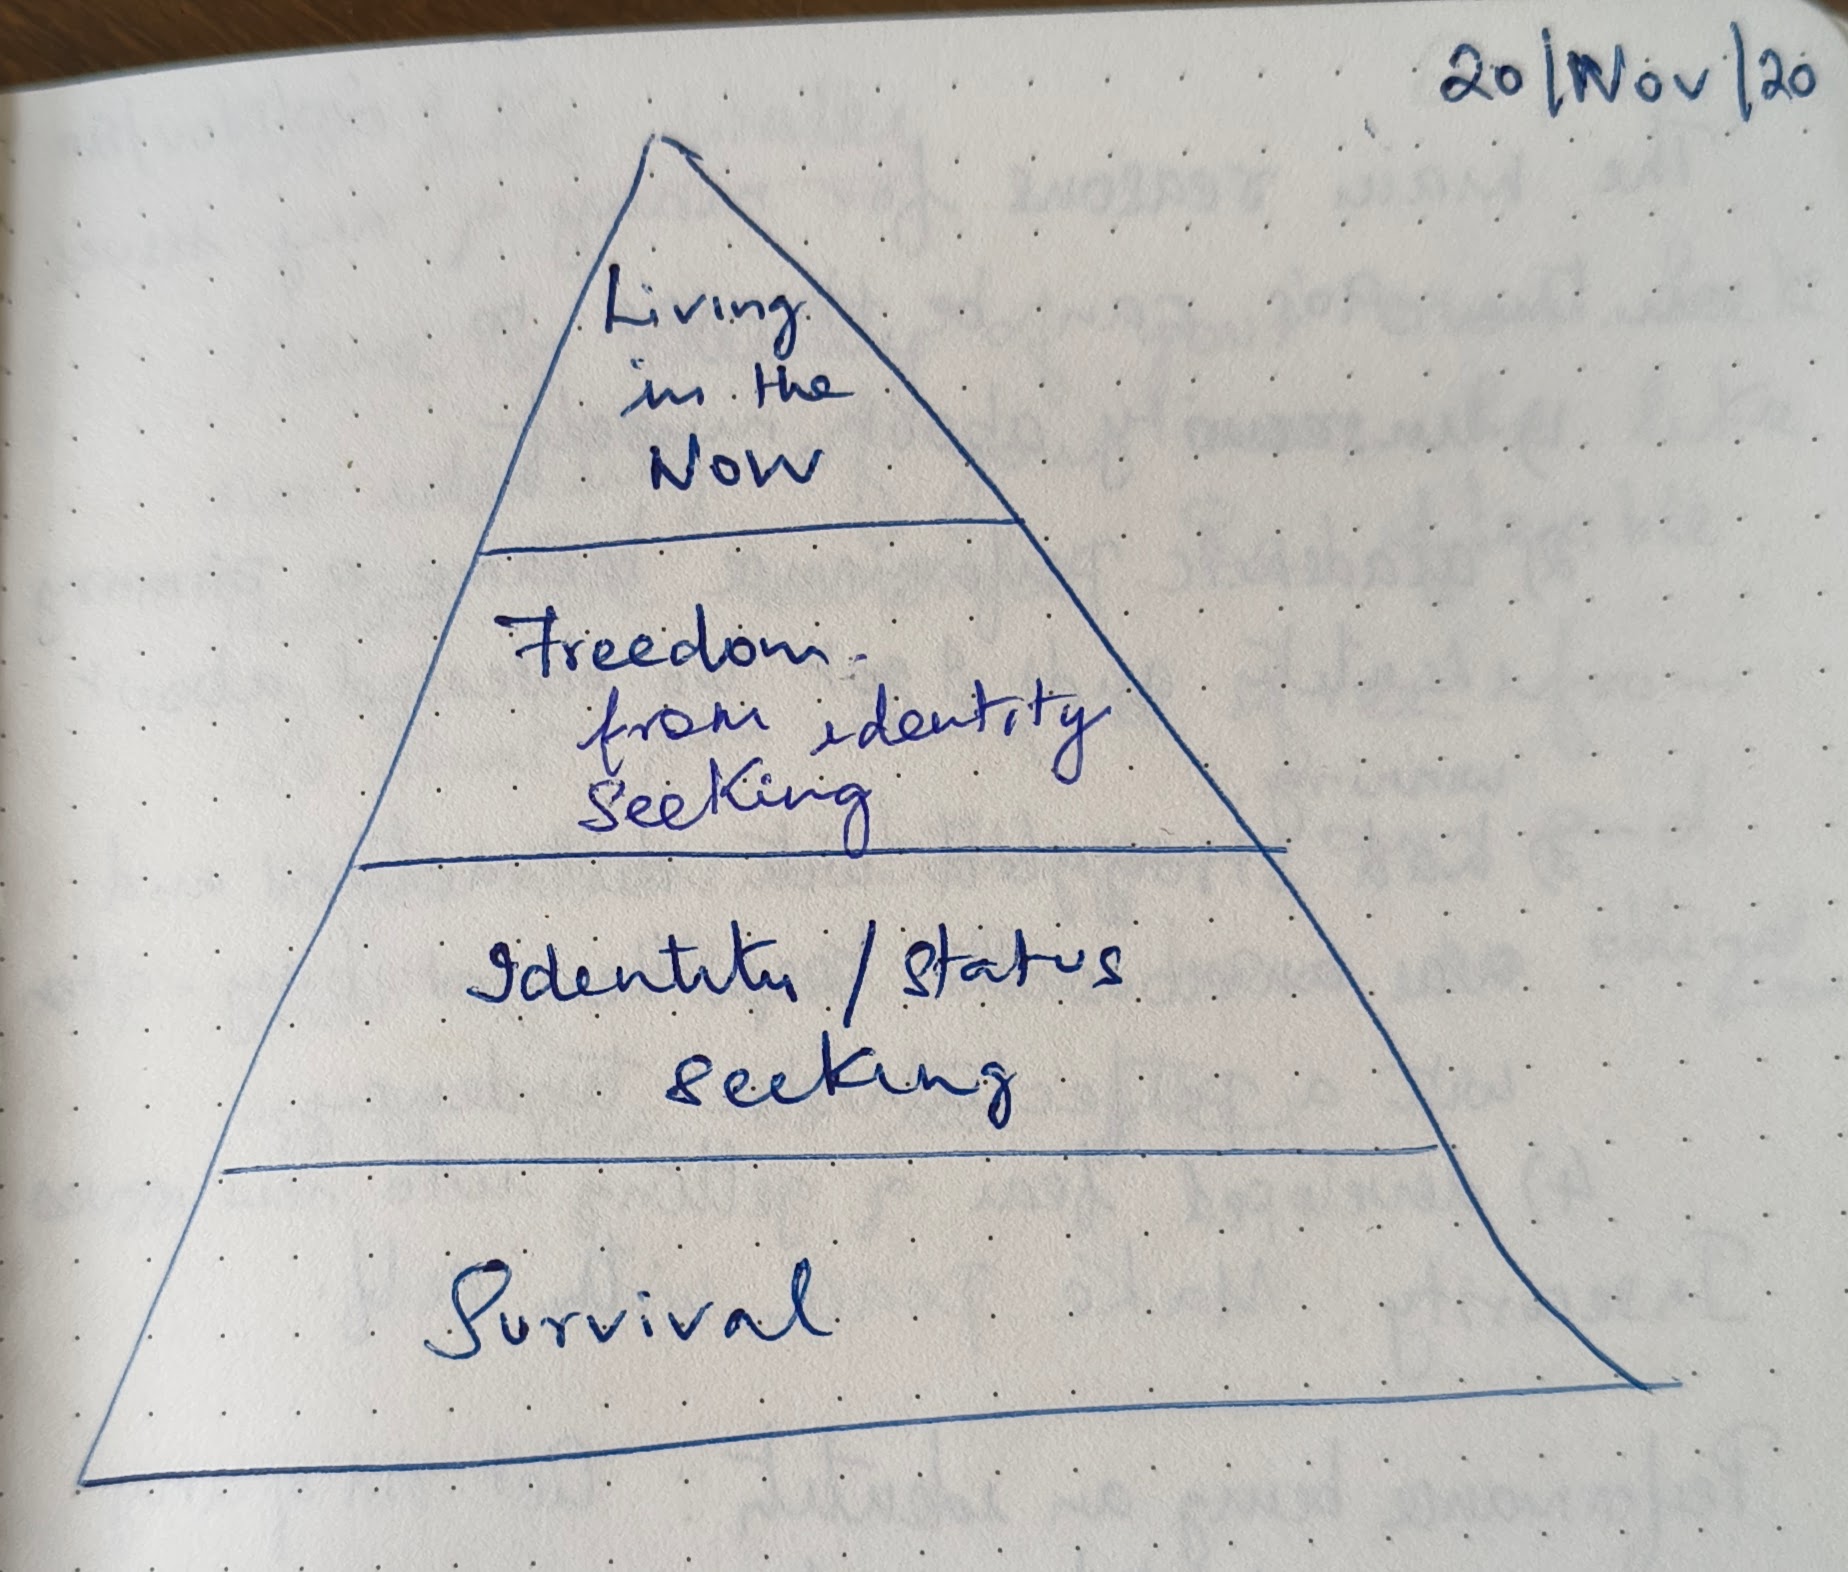 20/Nov/20
Living
in the
Now
Freedom
from identity
seeking
Identity / Status
seeking
Survival